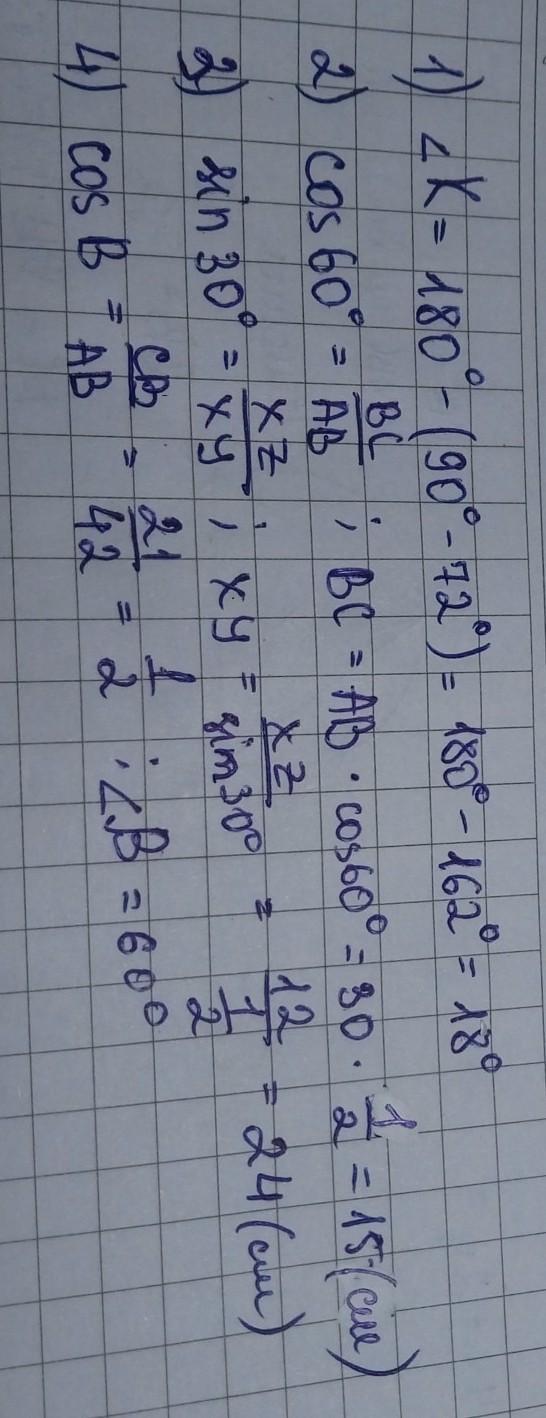 1) ∠K = 180° - (90° - 72°) = 180° - 162° = 18°
2) cos 60° = BC/AB ; BC = AB · cos60° = 30 · 1/2 = 15 (см)
3) sin 30° = XZ/XY ; XY = XZ/sin30° = 12/(1/2) = 24 (см)
4) cos B = CB/AB = 21/42 = 1/2 ; ∠B = 60°